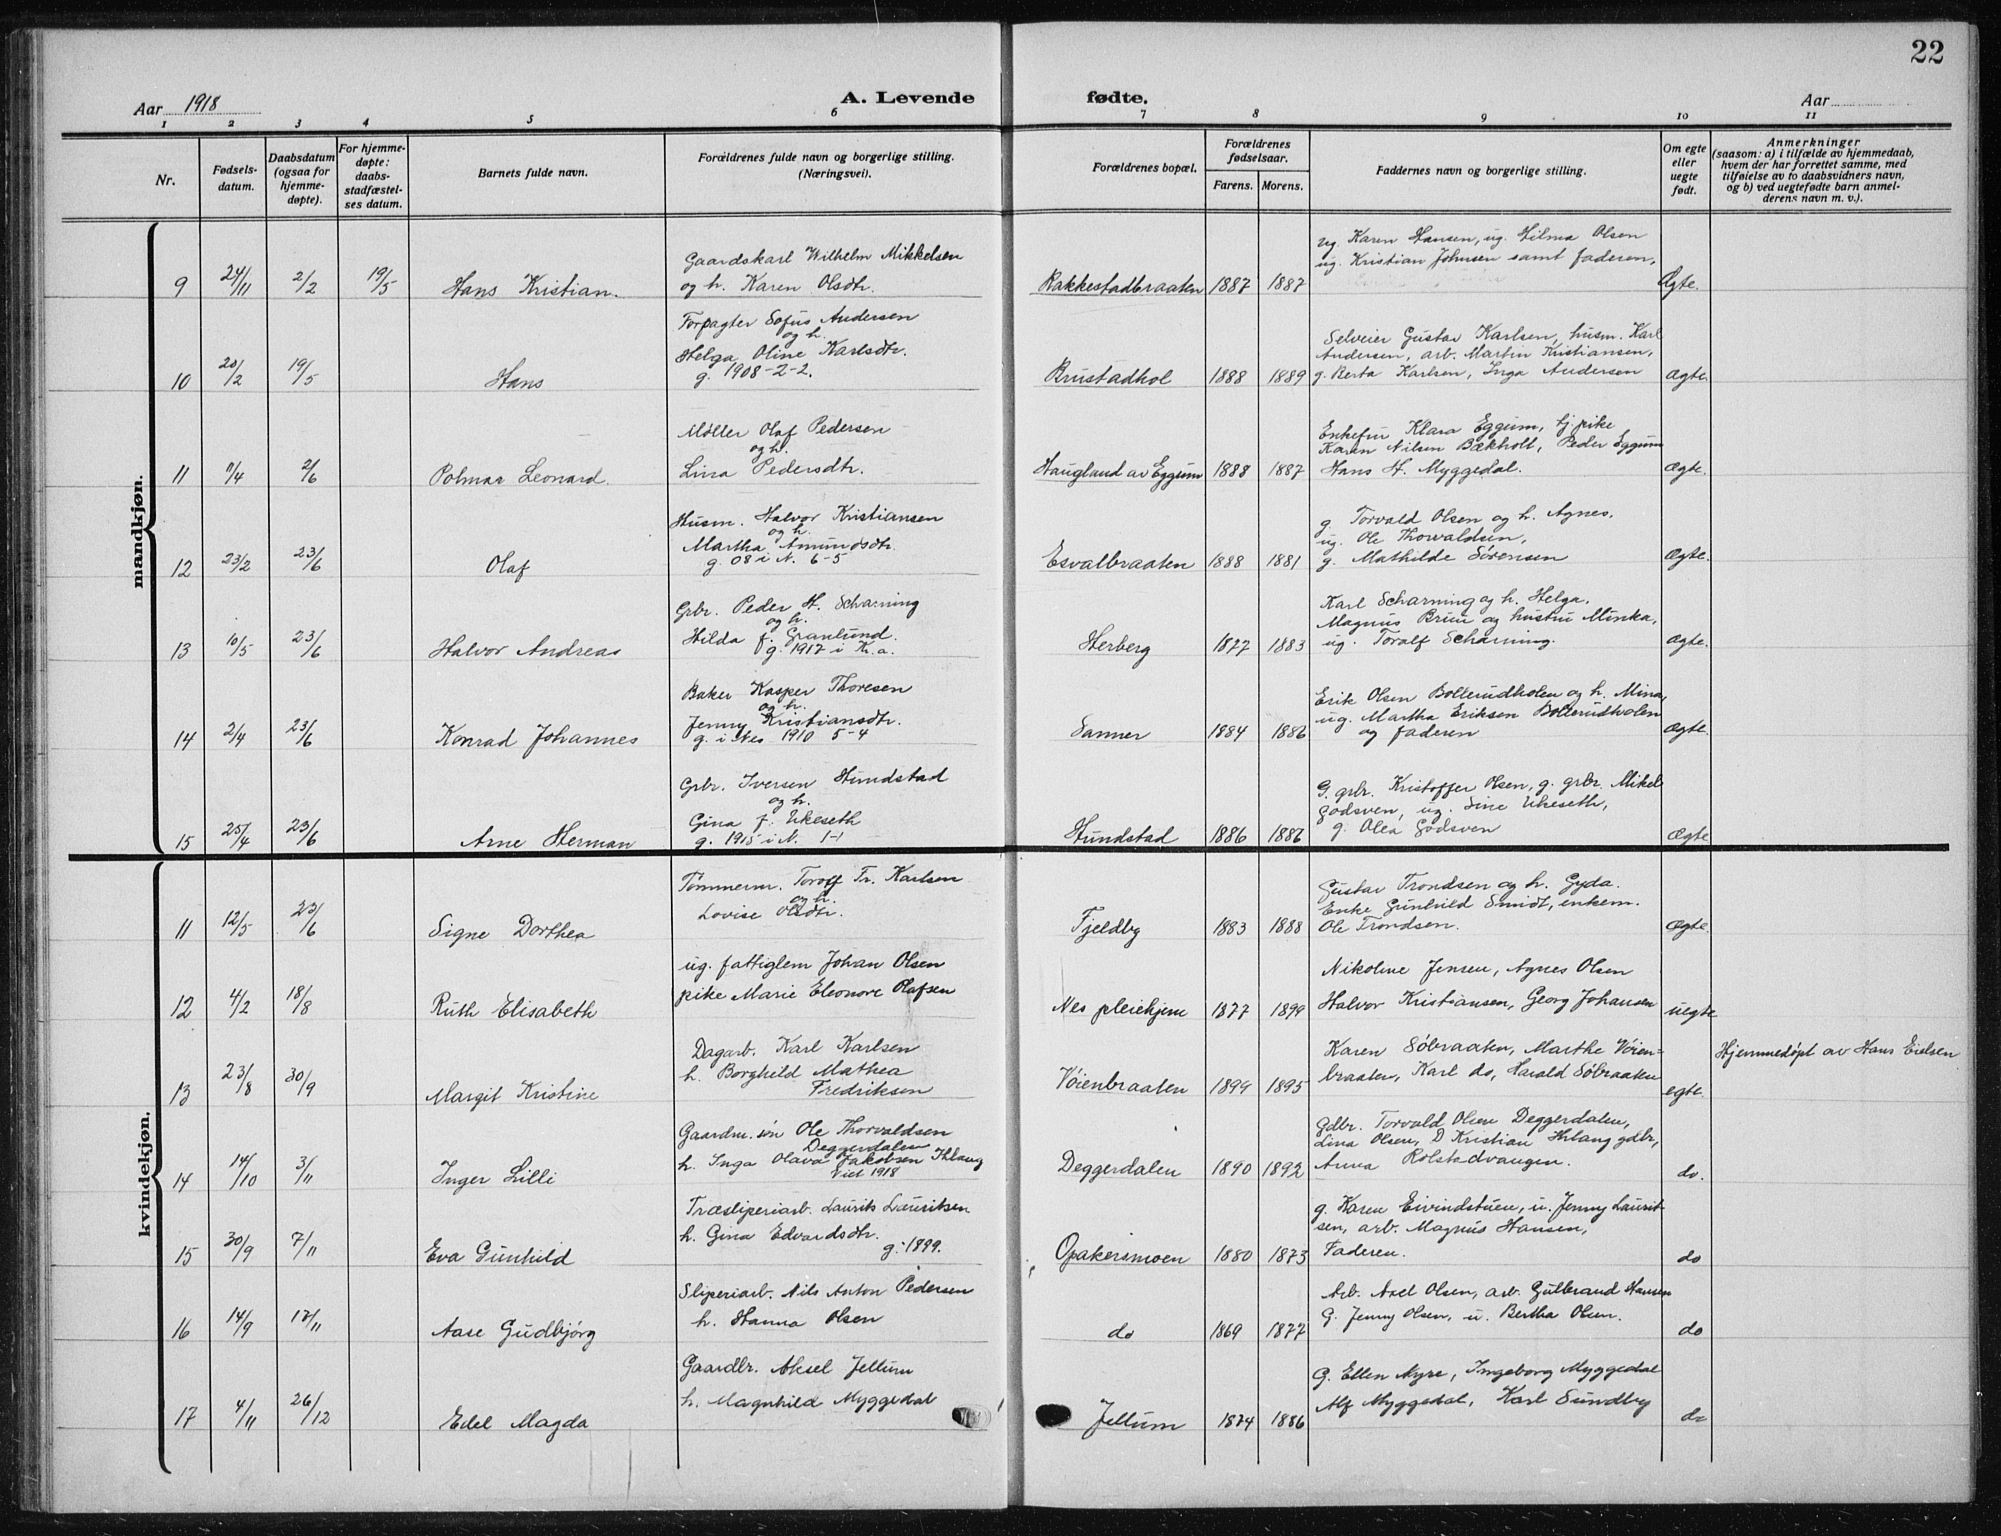 22
Aar 1918
A. Levende fødte.
Aar
1 2 3 4 5 6 7 8 9 10 11
Nr.
Fødsels-
datum.
Daabsdatum
(ogsaa for
hjemme-
døpte).
For hjemme-
døpte:
daabs-
stadfæstel-
ses datum.
Barnets fulde navn.
Forældrenes fulde navn og borgerlige stilling.
(Næringsvei).
Forældrenes bopæl.
Forældrenes
fødselsaar.
Farens. Morens.
Faddernes navn og borgerlige stilling.
Om egte
eller
uegte
født.
Anmerkninger
(saasom: a) i tilfælde av hjemmedaab,
hvem der har forrettet samme, med
tilføielse av to daabsvidners navn,
og b) ved uegtefødte barn anmel-
derens navn m. v.).
mandkjøn.
9 24/11 2/2 19/5 Hans Kristian.
Gaardskarl Wilhelm Mikkelsen
og h. Karen Olsdtr.
Rakkestadbraaten 1887 1887
ug. Karen Hansen, ug. Hilma Olsen
ug. Kristian Johnsen samt faderen,
Ægte.
10 20/2 19/5 Hans
Forpagter Sofus Andersen
og h.
Helga Oline Karlsdtr.
g. 1908-2-2.
Brustadhol 1888 1889
Selveier Gustav Karlsen, husm. Karl
Andersen, arb. Martin Kristiansen,
g. Berta Karlsen, Inga Andersen
ægte.
11 11/4 2/6 Polmar Leonard.
Møller Olaf Pedersen
og h.
Lina Pedersdtr.
Haugland av Eggum 1888 1887
Enkefru Klara Eggum, tj pike
Karen Nilsen Bækholt, Peder Eggum
Hans H. Myggedal.
Ægte.
12 23/2 23/6 Olaf
Husm. Halvor Kristiansen
og h.
Martha Amundsdtr.
g. 08 i N. 6-5
Esvalbraaten 1888 1881
g Torvald Olsen og h. Agnes,
ug. Ole Thorvaldsen,
g. Mathilde Sørensen
Ægte.
13 10/5 23/6 Halvor Andreas
Grbr. Peder H. Scharning
og h.
Hilda f. Granlund.
g. 1917 i Kr.a.
Herberg 1877 1883
Karl Scharning og h. Helga,
Magnus Bruu og hustru Minka,
ug. Toralf Scharning.
Ægte.
14 2/4 23/6 Konrad Johannes
Baker Kasper Thoresen
og h.
Jenny Kristiansdtr.
g. i Nes 1910 5-4
Sanner 1884 1886
Erik Olsen Bollerudholen og h. Mina,
ug. Martha Eriksen Bollerudholen
og faderen
Ægte.
15 25/4 23/6 Arne Herman
Grbr. Iversen Hundstad
og h.
Gina f. Ukeseth
g. 1915 i N. 1-1
Hundstad 1886 1887
G. grbr. Kristoffer Olsen, g. grbr. Mikel
Godsven, ug. Sine Ukeseth,
g. Olea Godsven
Ægte
kvindekjøn.
11 12/5 23/6 Signe Dorthea
Tømmerm. Torolf Tr. Karlsen
og h.
Lovise Olsdtr.
Fjeldby 1883 1888
Gustav Trondsen og h. Gyda.
Enke Gunhild Smidt, enkem.
Ole Trondsen.
Ægte.
12 4/2 18/8 Ruth Elisabeth
ug. fattiglem Johan Olsen
pike Marie Eleonore Olafsen
Nes pleiehjem 1877 1899
Nikoline Jensen, Agnes Olsen
Halvor Kristiansen, Georg Johansen
uegte
13 23/8 30/9 Margit Kristine
Dagarb. Karl Karlsen
h. Borghild Mathea
Fredriksen
Vøienbraaten 1899 1895
Karen Søbraaten, Marthe Vøien-
braaten, Karl do, Harald Søbraaten
egte.
Hjemmedøpt av Hans Eielsen
14 14/10 3/11 Inger Lilli
Gaardm. søn Ole Thorvaldsen
Deggerdalen
h. Inga Olava Jakobsen Ihlang
Viet 1918
Deggerdalen 1890 1892
Gdbr. Torvald Olsen Deggerdalen,
Lina Olsen, D Kristian Ihlang gdbr,
Anna Rolstadvangen.
do.
15 30/9 7/11 Eva Gunhild
Træsliperiarb. Laurits Lauritsen
h. Gina Edvardsdtr.
g. 1899.
Opakersmoen 1880 1873
g. Karen Eivindstuen, u. Jenny Laurit-
sen, arb. Magnus Hansen,
Faderen.
do
16 14/9 17/11 Aase Gudbjørg
Sliperiarb. Nils Anton Pedersen
h. Hanna Olsen
do 1869 1877
Arb. Axel Olsen, arb. Gulbrand Hansen
G. Jenny Olsen, u. Bertha Olsen.
do
17 4/11 26/12 Edel Magda
Gaardbr. Aksel Jellum
h. Magnhild Myggedal
Jellum 1874 1886
G. Ellen Myre, Ingeborg Myggedal
Alf Myggedal, Karl Sundby
do